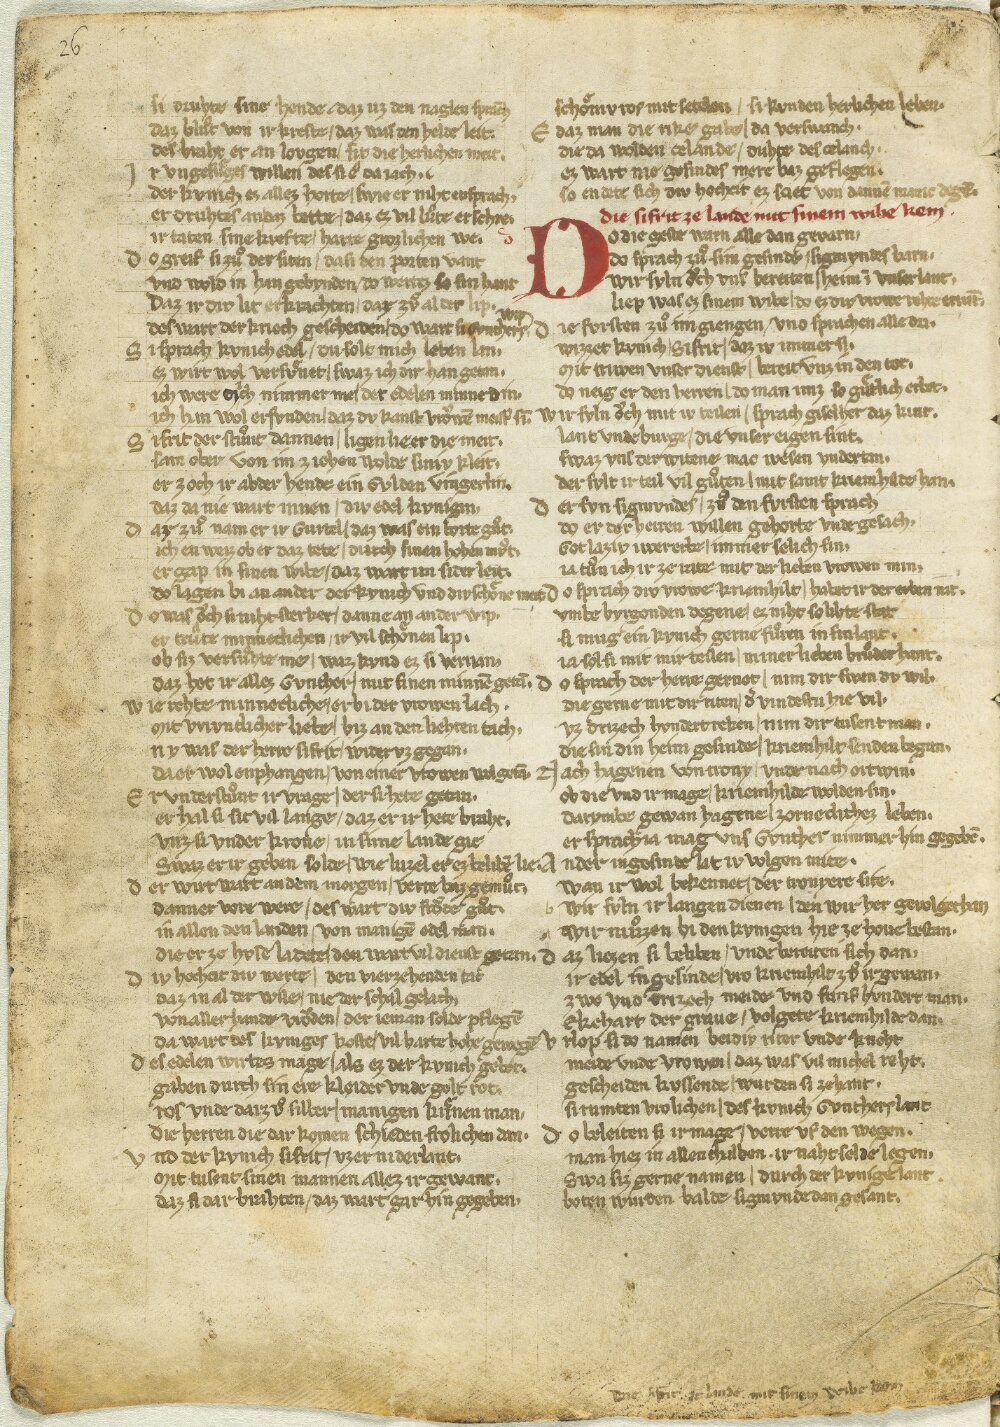 26
si druhte sine hende daz uz den naglen spranch
daz blůt von ir krefte / daz was den helde leit.
des braht er an lovgen / sit die herlichen meit.
I r vngefůges willen des si ê da iach.
der kvnich ez allez horte / swie er niht ensprach.
er druhtes an daz bette / daz ez vil lůte erschre.
ir taten sine krefte / harte grozlichen we.
D o greif si zů der siten / da si den porten vant
vnd wold in han gebvnden / do wertez so sin hant
Daz ir div lit erkrachten / daz zv̊ al der lip.
des wart der kriech gescheiden / do wart si Gvnthers wip
S i sprach kvnich edel / du solt mich leben lan.
ez wirt wol versv̊net / swaz ich dir han getan.
ich were dich nimmer me / der edelen minne din.
ich han wol erfvnden / daz dv kanst vrowen meister sin.
S ifrit der stůnt dannen / ligen lie er die meit.
sam ober von im ziehen wolde siniv kleit.
er zoch ir ab der hende ein Gvlden vingerlin.
daz da nie wart innen / div edel kvnigin.
D ar zů nam er ir Gurtel / daz was ein borte gůt.
ich en weiz ob er daz tete / durch sinen hohen můt.
er gap in sinen wibe / daz wart im sider leit.
do lagen bi an ander der kvnich vnd div schône meit
D o was och si niht sterker / danne an ander wip.
er trůte minneclichen / ir vil schônen lip.
ob siz versůchte me / waz kvnd ez si vervan
daz het ir allez Gvnther / mit sinen minnen getan.
W ie rehte minnecliche / er bi der vrowen lach.
mit vrivntlicher liebe / biz an den liehten tach.
n v was der herre sifrit / wider vz gegan.
da er wol enphangen / von einer vrowen wolgetan.
E r vnderstůnt ir vrage / der si hete getan.
er hal si sit vil lange / daz er ir hete braht.
vnz si vnder krone / in sime lande gie
Swaz er ir geben solde / wie luzel erz beliben lie.
D er wirt wart an dem morgen / verre baz gemůt.
danner vore were / des wart div frôde gůt.
in allen den landen / von manigem edel man.
die er ze hvse ladete / den wart vil dienst getan.
D iv hochzit div werte / den vierzehenden tac
daz in al der wile / nie der schal gelach.
von aller hande vrôden / der ieman solde pflegen
da wart des kvniges koste / vil harte hohe gewegen
D es edelen wirtes mage / als ez der kvnich gebot.
gaben durch sin ere kleider vnde golt rot.
ros vnde dar zv̊ silber / manigen kůenen man.
die herren die dar komen schieden frolichen dan.
V nd der kvnich sifrit / vzer niderlant.
mit tusent sinen mannen allez ir gewant.
daz si dar brahten / daz wart gar hin gegeben.
schôniv ros mit setelen / si kvnden herlichen leben.
E daz man die rike gabe / da verswanch.
die da wolden ce lande / duhte des ce lanch.
ez wart nie gesindes mere baz gepflegen.
so endete sich div hochzit ez sciet von dannen manic degen.
die sifrit ze lande mit sinem wibe kem.
D o die geste warn alle dan gevarn
do sprach zů sim gesinde / sigmvndes barn.
wir svln och vns bereiten / heim in vnser lant.
liep was ez sinem wibe / do ez div vrowe rehte ervant.
D ie fvrsten zů im giengen / vnd sprachen alle dri.
wizzet kvnich Sifrit / daz iv immer si.
mit triwen vnser dienst / bereit vnz in den tot.
do neig er den herren / do man imz so gůtlich erbot.
W ir svln och mit iv teilen / sprach giselher daz kint.
lant vnde burge / die vnser eigen sint.
swaz vns der witene mac wesen vndertan.
der svlt ir teil vil gůten / mit samt kriemhilde han.
D er svn sigmvndes / zů den fvrsten sprach
do er der herren willen gehorte vnde gesach.
Got laz iv iwer erbe / immer selich sin.
ia tůn ich ir ze rate mit der lieben vrowen min.
D o sprach div vrowe kriemhilt / habet ir der erben rat.
vmbe bvrgonden degene / ez niht so lihte stat
si mug ein kvnich gerne fůren in sin lant.
ia sol si mit mir teilen / miner lieben brůder hant.
D o sprach der herre gernot / nim dir swen dv wil.
die gerne mit dir riten / d' vindestu hie vil.
vz drizech hvndert reken / nim dir tusent man.
die sin din heim gesinde / kriemhilt senden began.
N ach hagenen von trony / vnde nach ortwin.
ob die vnd ir mage / kriemhilde wolden sin.
darvmbe gewan hagene / zornechichez leben.
er sprach ia mag vns Gvnther nimmer hin gegeben.
A nder ingesinde lat ir volgen mite.
wan ir wol bekennet / der tronyere site.
wir svln ir langen dienen / den wir her gevolget han
wir můzen bi den kvnigen hie ze hove bestan.
D az liezen si beliben / vnde bereiten sich dan.
ir edel ingesinde / vro kriemhilt zv̊ ir gewan.
zwo vnd drizech meide vnd funf hvndert man.
Ekehart der graue / volgete kriemhilde dan.
V rlop si do namen beidiv riter vnde kneht
meide vnde vrowen / daz was vil michel reht.
gescheiden kvssende / wurden si zehant.
si rumten vrolichen / des kvnich Gvnthers lant
D o beleiten si ir mage / verre vf den wegen.
man hiez in allenthalben ir naht selde legen.
Swa siz gerne namen / durch der kvnige lant
boten wurden balde sigmvnde dan gesant.
Die sifrit ze lande mit sinem wibe kem